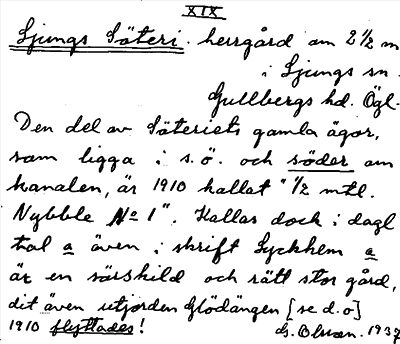 XIX
Ljungs Säteri. herrgård om 2 1/2 m
i Ljungs sn.
Gullbergs hd. Ögl.
Den del av Säteriets gamla ägor,
som ligga i s.ö. och söder om
kanalen, är 1910 kallat "1/2 mtl.
Nybble No 1". Kallas dock i dagl
tal a även i skrift Lyckhem a
är en särskild och rätt stor gård,
dit även utjorden Glödängen [se d.o]
1910 flyttades! G. Olson. 1937